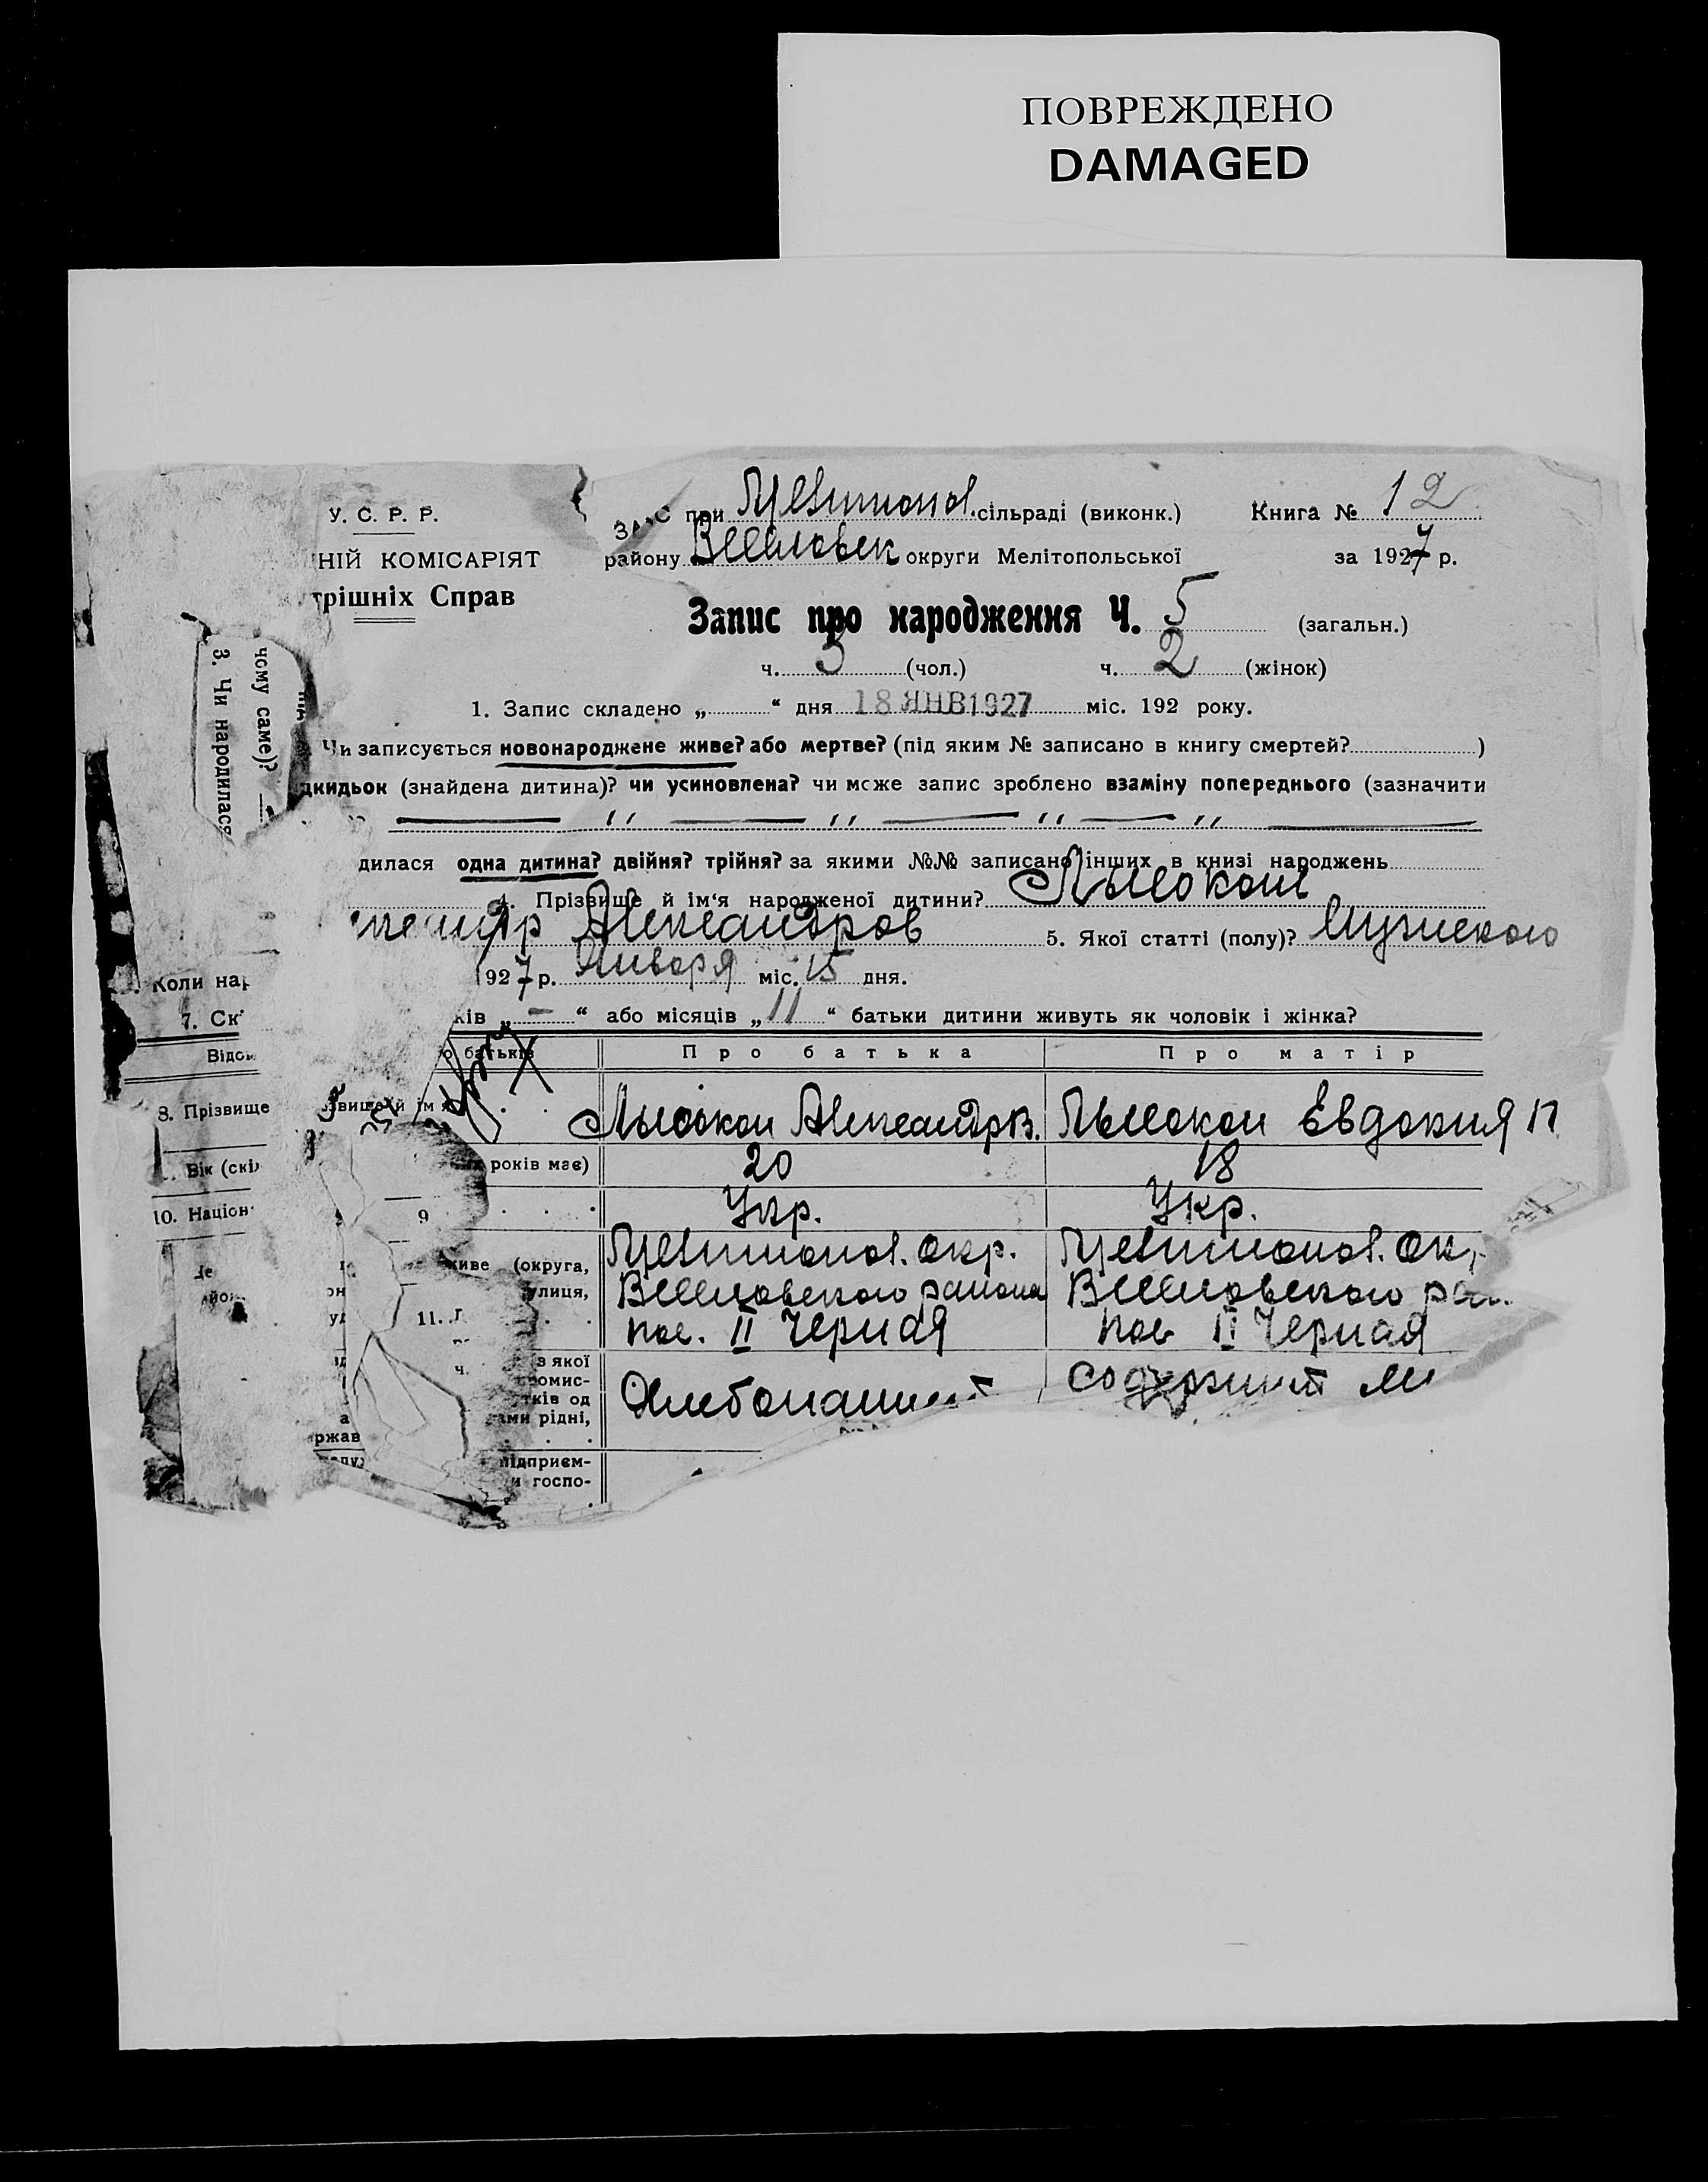 ПОВРЕЖДЕНО
DAMAGED
У. С. Р. Р.
НІЙ КОМІСАРІЯТ
трішніх Справ
ЗАГС при Мелитопол. сільраді (виконк.) Книга № 12
району Веселовск округи Мелітопольської за 1927 р.
Запис про народження Ч. 5 (загальн.)
ч. 3 (чол.) ч. 2 (жінок)
1. Запис складено „ “ дня 18 ЯНВ 1927 міс. 192 року.
Чи записується новонароджене живе? або мертве? (під яким № записано в книгу смертей? )
дкидьок (знайдена дитина)? чи усиновлена? чи може запис зроблено взаміну попереднього (зазначити
чому саме)?
3. Чи народилася
дилася одна дитина? двійня? трійня? за якими №№ записано інших в книзі народжень
4. Прізвище й ім‘я народженої дитини? Лысокон
Александров 5. Якої статті (полу)? Мужского
Коли нар 927 р. Января міс. 15 дня.
7. Ск ків „ – “ або місяців „ 11 “ батьки дитини живуть як чоловік і жінка?
Відом о батьків Про батька Про матір
8. Прізвище звище й ім‘я Лысокон Александр В. Лысокон Евдокия П
Вік (скі років має) 20 18
10. Націон 9 Укр. Укр.
живе (округа, Мелитопол. Окр. Мелитопол. Ок
улиця, Веселовского района Веселовского ра
11. пос. II Черная пос II Черная
з якої
омис-
тків од Хлебопашест содержит
ами рідні,
ржав
підприєм-
и госпо-